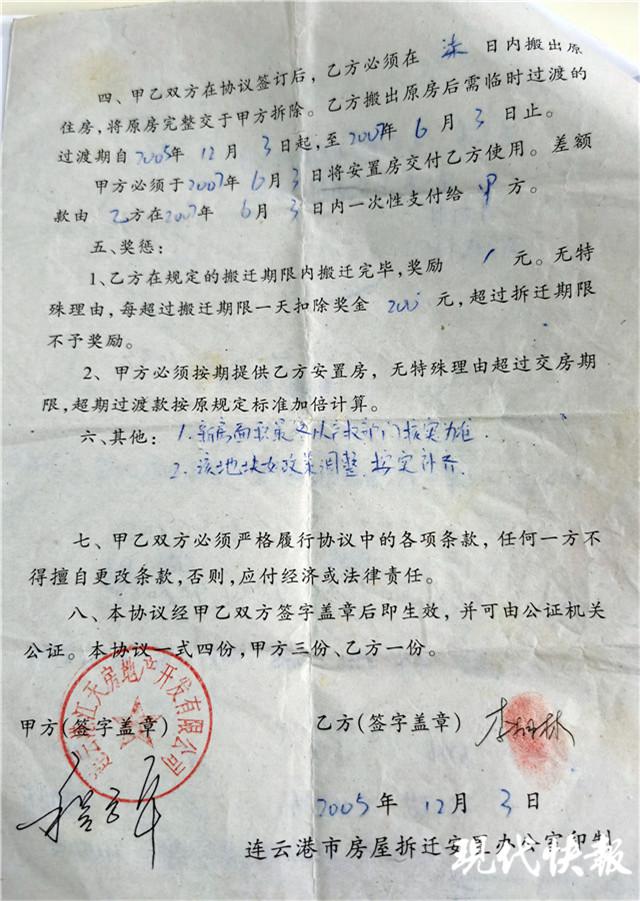 四、甲乙双方在协议签订后，乙方必须在 柒 日内搬出原
住房，将原房完整交于甲方拆除。乙方搬出原房后需临时过渡的
过渡期自2005年 12 月 3日起，至2007年 6 月 3日止。
甲方必须于2007年 6月 3日将安置房交付乙方使用。差额
款由 乙方在2007年 6月 3日内一次性支付给 甲 方。
五、奖惩：
1、乙方在规定的搬迁期限内搬迁完毕，奖励 1 元。无特
殊理由，每超过搬迁期限一天扣除奖金 200 元，超过拆迁期限
不予奖励。
2、甲方必须按期提供乙方安置房，无特殊理由超过交房期
限，超期过渡款按原规定标准加倍计算。
六、其他：1.新房面积最终以产权部门核实为准.
2.该地块如政策调整，按实补齐.
七、甲乙双方必须严格履行协议中的各项条款，任何一方不
得擅自更改条款，否则，应付经济或法律责任。
八、本协议经甲乙双方签字盖章后即生效，并可由公证机关
公证。本协议一式四份，甲方三份、乙方一份。
江天房地产开发有限公司
甲方(签字盖章) 乙方(签字盖章)
2005年 12月 3日
连云港市房屋拆迁安置办公室印制
现代快报